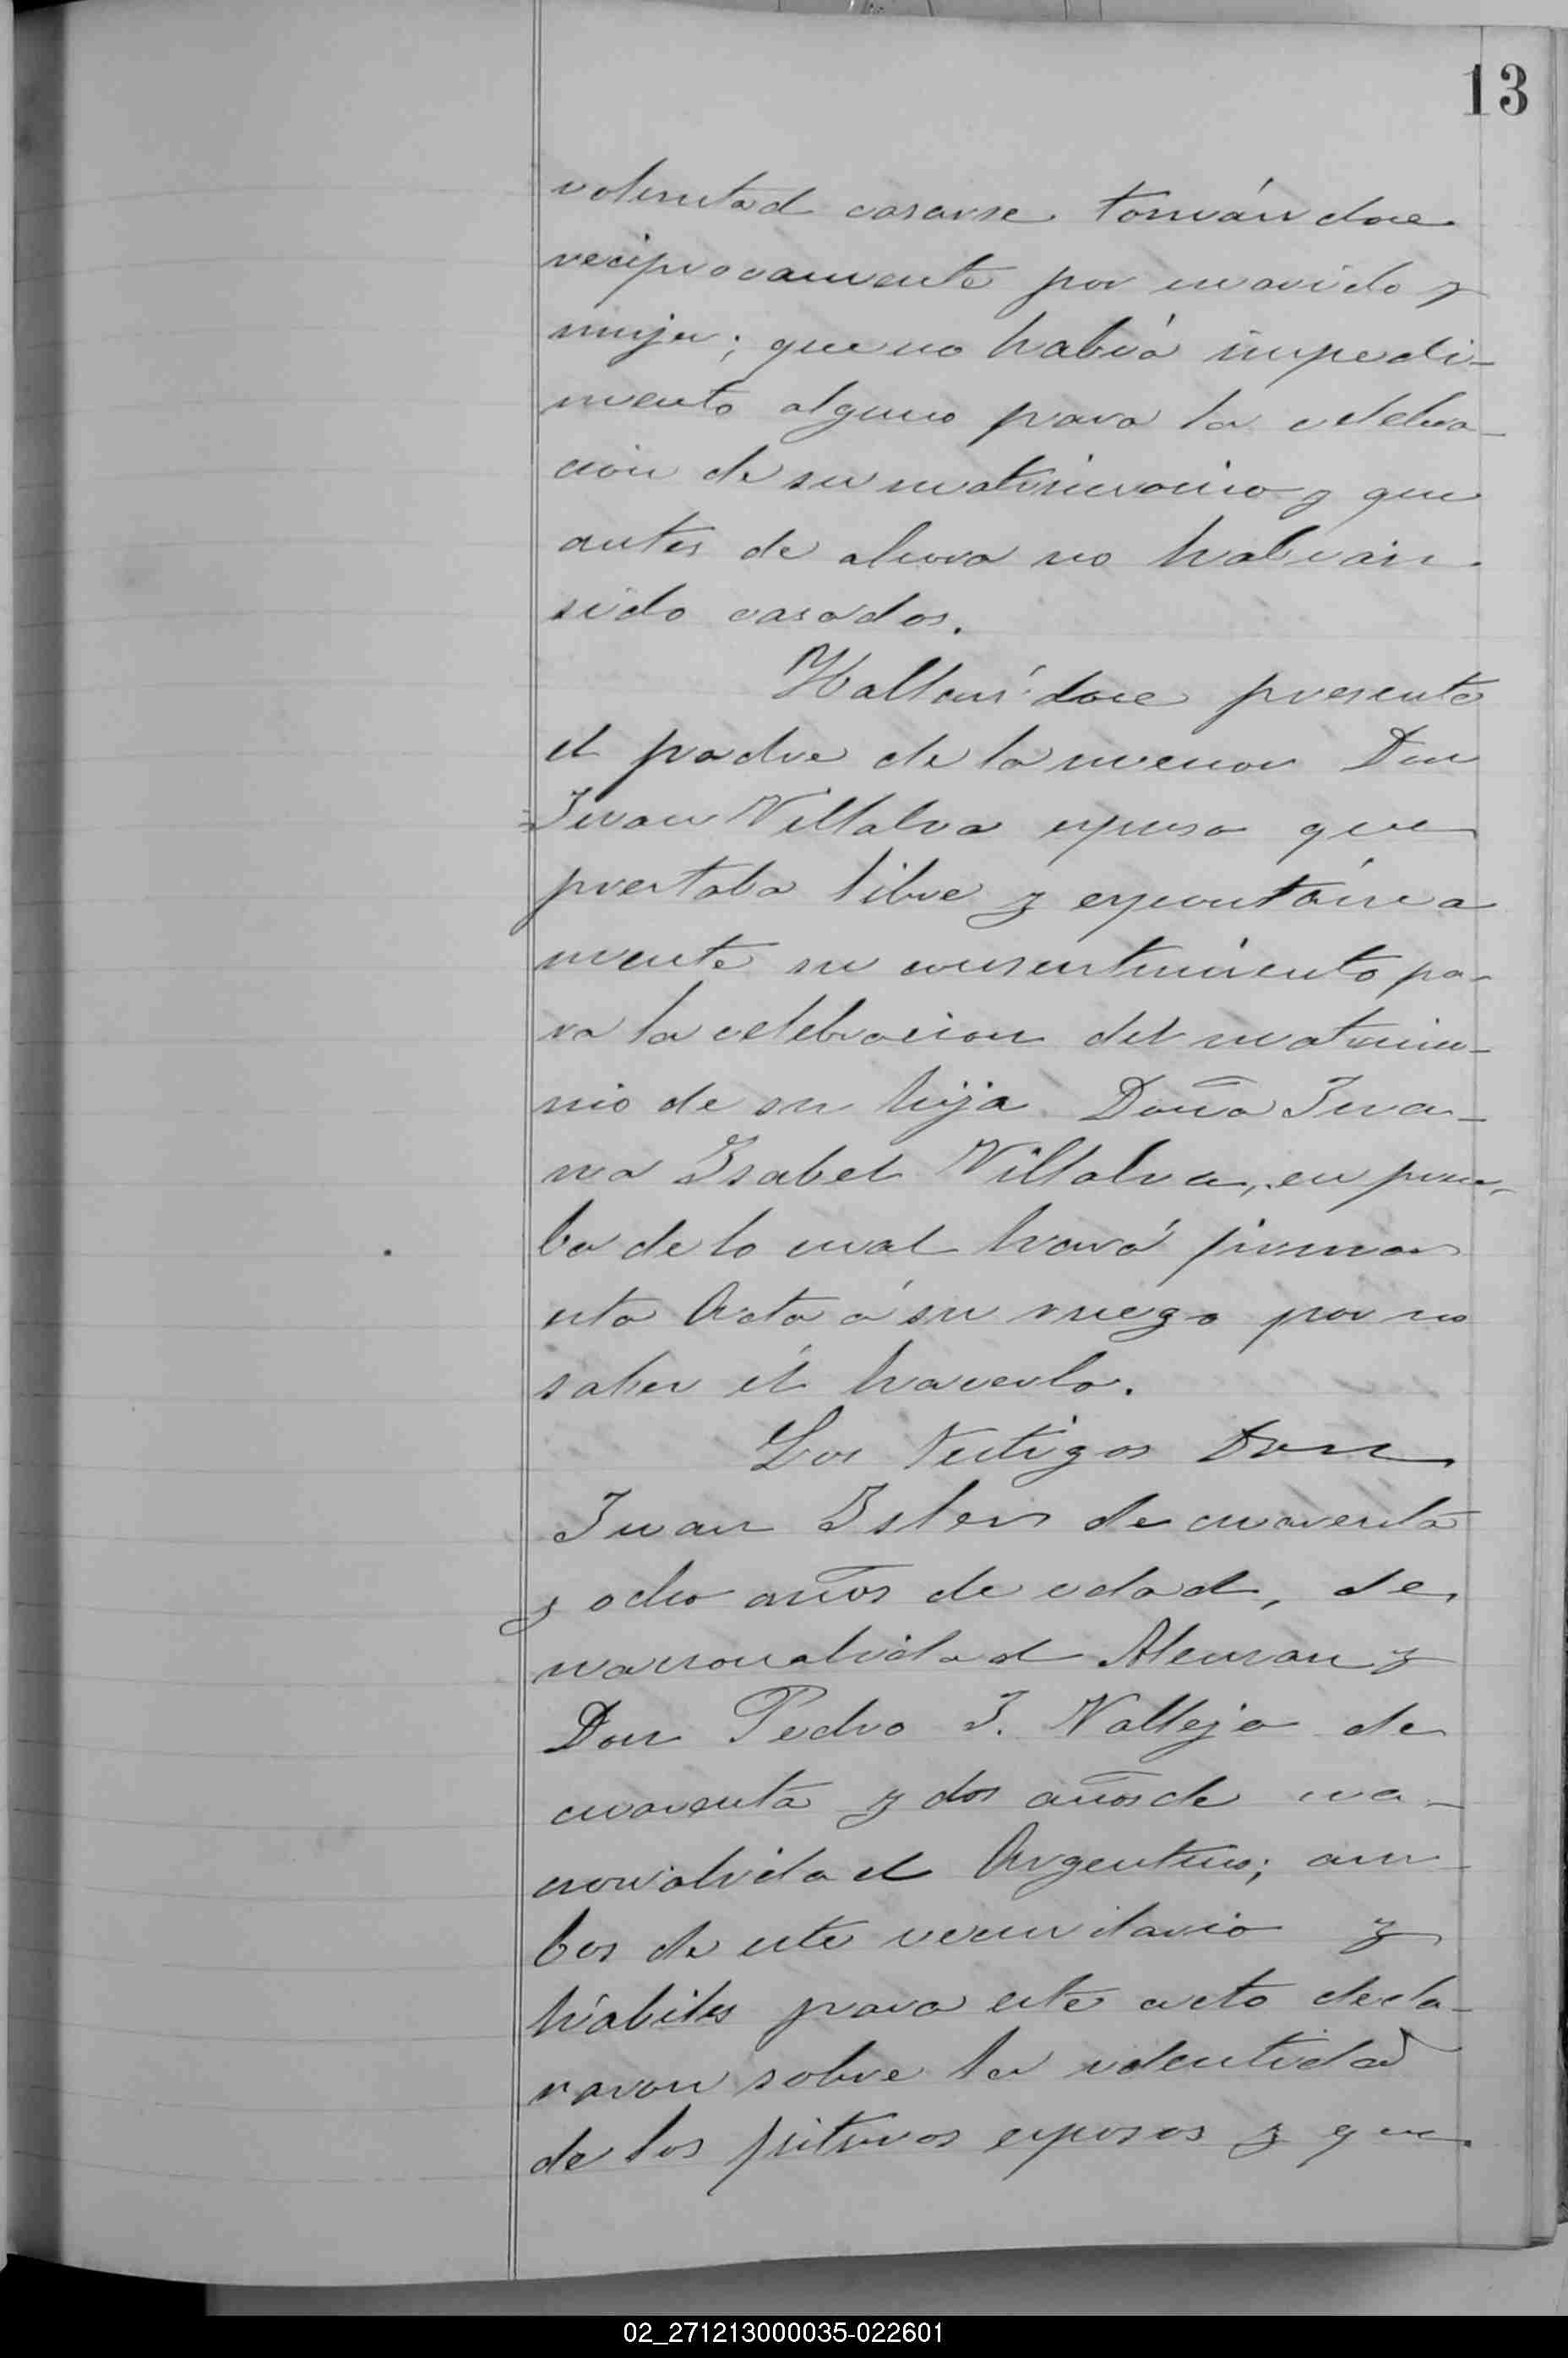 13
voluntad casarse tomándose
reciprocamente por marido y
mujer; que no habia impedi-
mento alguno para la celebra-
cion de su matrimonio y que
antes de ahora no habian
sido casados.
Hallándose presente
el padre de la menor Don
Juan Villalva expuso que
prestaba libre y expontánea
mente su consentimiento pa-
ra la celebracion del matrimo-
nio de su hija Doña Jua-
na Isabel Villalva, en prue-
ba de lo cual hará firmar
esta Acta á su ruego por no
saber él hacerlo.
Los Testigos Don
Juan Isler de cuarenta
y ocho años de edad, de
nacionalidad Aleman y
Don Pedro J. Vallejo de
cuarenta y dos años de na-
cionalidad Argentino; am-
bos de este vecindario y
hábiles para este acto decla-
raron sobre la identidad
de los futuros esposos y que
02_271213000035-022601